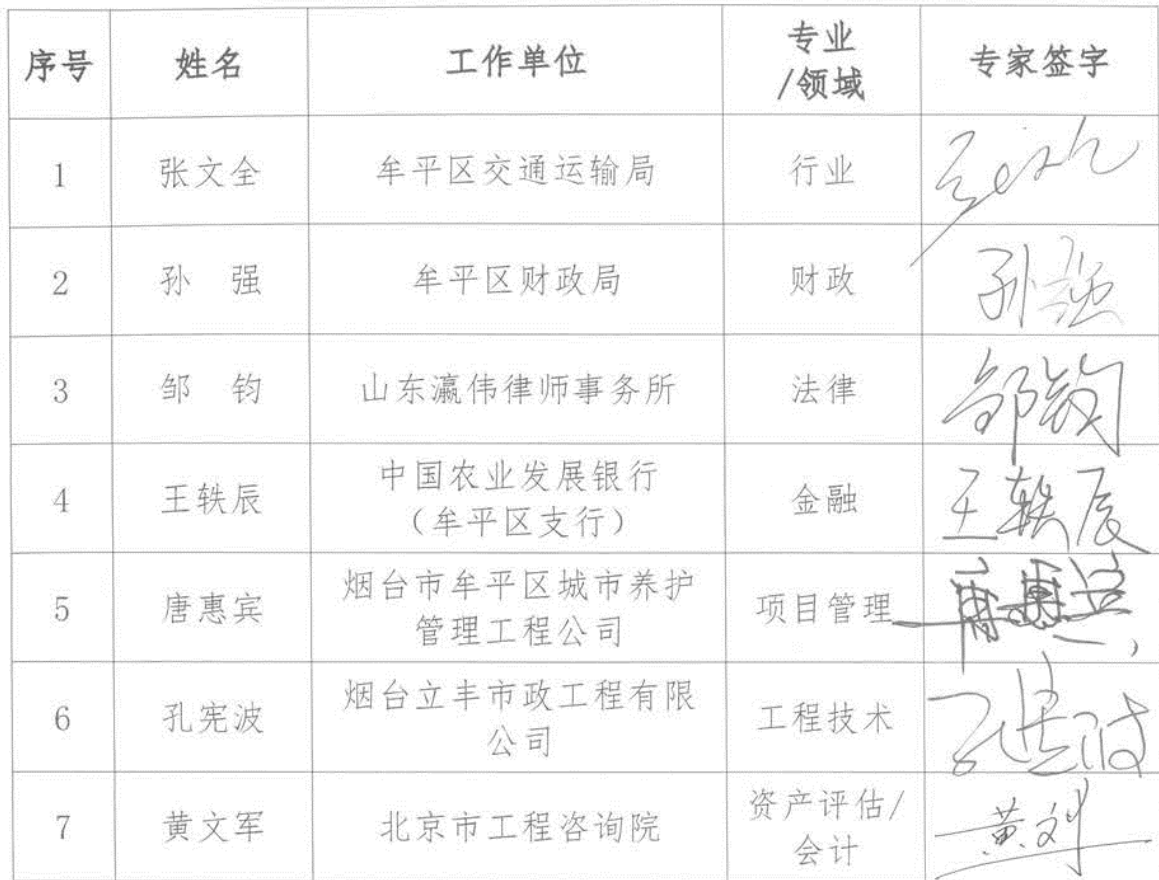 序号 姓名 工作单位 专业/领域 专家签字
1 张文全 牟平区交通运输局 行业
2 孙 强 牟平区财政局 财政 孙强
3 邹 钧 山东瀛伟律师事务所 法律 邹钧
4 王轶辰 中国农业发展银行
（牟平区支行） 金融 王轶辰
5 唐惠宾 烟台市牟平区城市养护
管理工程公司 项目管理
6 孔宪波 烟台立丰市政工程有限
公司 工程技术
7 黄文军 北京市工程咨询院 资产评估/
会计